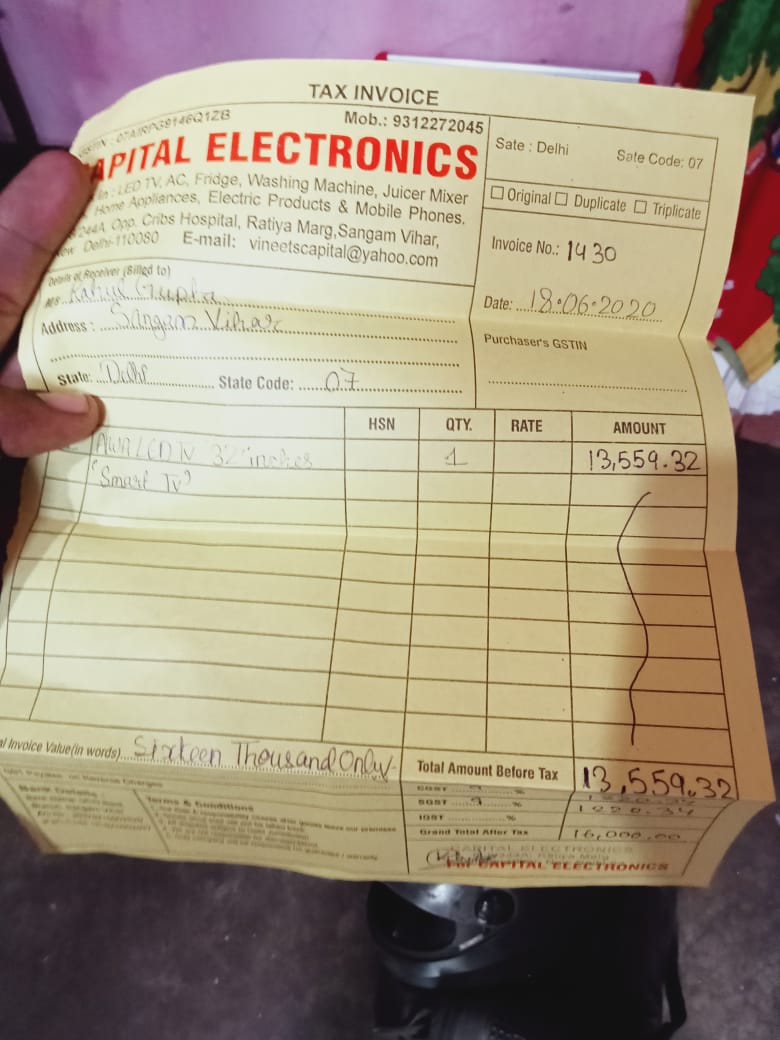 TAX INVOICE
Mob.: 9312272045
CAPITAL ELECTRONICS
in : LED TV, AC, Fridge, Washing Machine, Juicer Mixer
Home Appliances, Electric Products & Mobile Phones.
244A, Opp. Cribs Hospital, Ratiya Marg, Sangam Vihar,
New Delhi-110080 E-mail: vineetscapital@yahoo.com
Sate : Delhi Sate Code: 07
Original Duplicate Triplicate
Invoice No.: 1430
Date: 18.06.2020
Purchaser's GSTIN
Details of Receiver (Billed to)
M/s Rahul Gupta
Address : Sangam Vihar
State: Delhi State Code: 07
HSN QTY. RATE AMOUNT
LCD TV 32" inches 1 13,559.32
"Smart TV"
Invoice Value(in words) Sixteen Thousand Only
Total Amount Before Tax 13,559.32
CGST 9 %
SGST 9 % 1220.34
IGST %
Grand Total After Tax 16,000.00
Terms & Conditions
CAPITAL ELECTRONICS
For CAPITAL ELECTRONICS